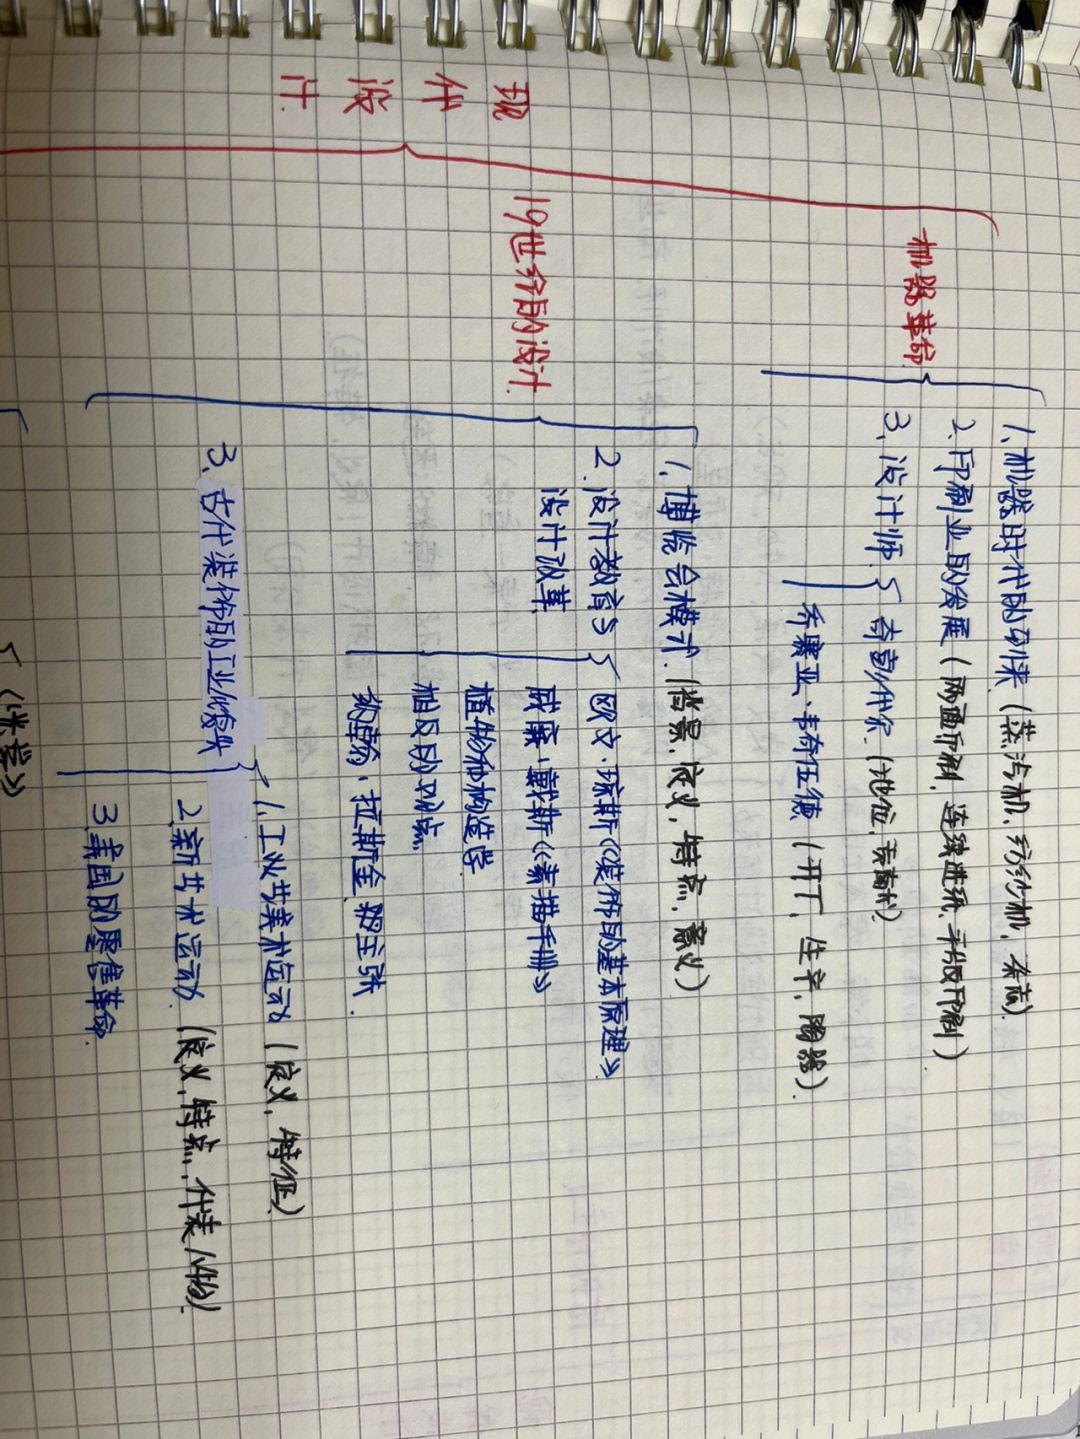 现代设计
机器革命
1.机器时代的到来(蒸汽机、纺纱机、杂志).
2.印刷业的发展(两面印刷、连续进纸、平版印刷)
3.设计师
奇彭代尔.(地位、表面术)
乔赛亚、韦奇伍德(开厂、生平、陶器).
19世纪的设计
1.博览会模式.(背景、定义、特点、意义)
2.设计教育与
设计改革
欧文·琼斯《装饰的基本原理》
威廉·戴斯《素描手册》
植物和构造学
相反的观点
约翰·拉斯金 的主张.
3.古代装饰的工业源头
1.工从艺美术运动(定义、特征)
2.新艺术运动.(定义、特点、代表人物).
3.美国的零售革命.